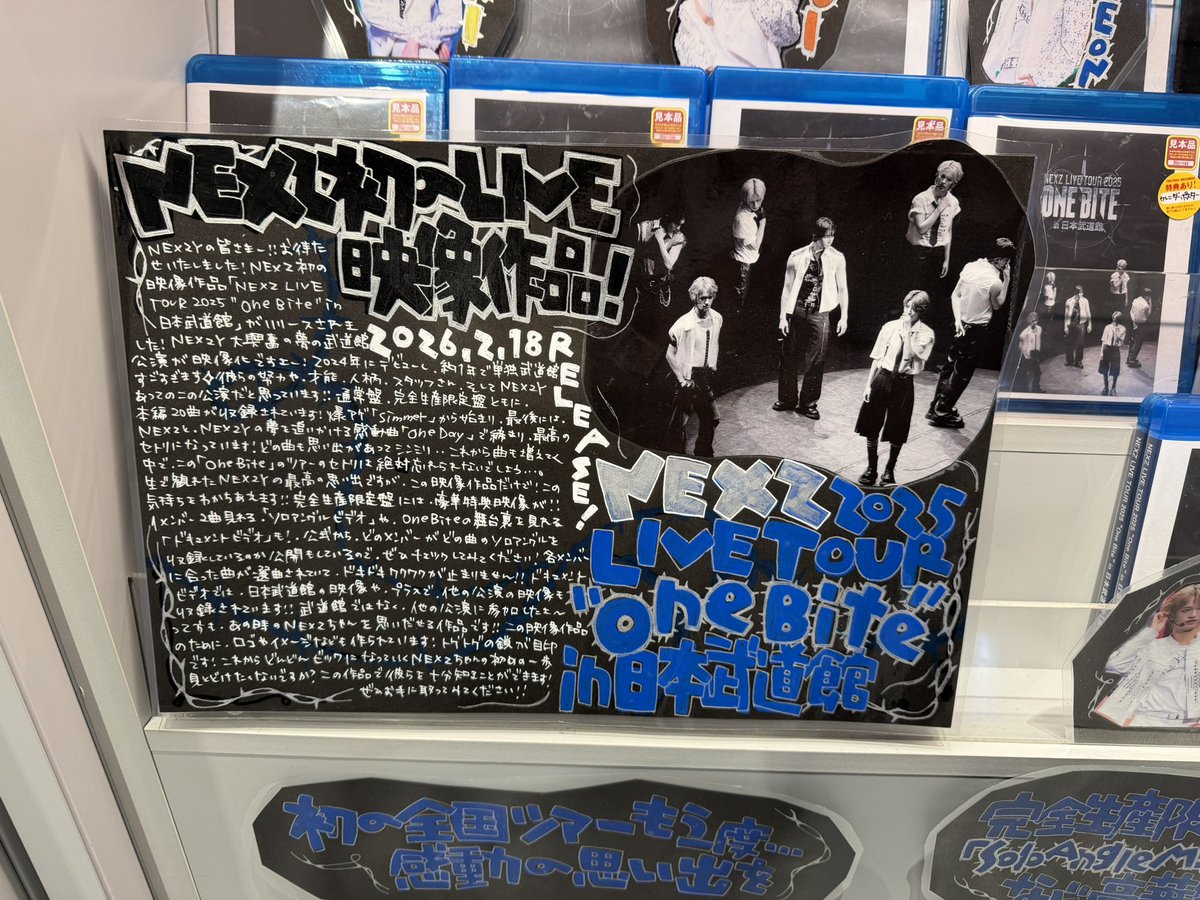 NEXZ初のLIVE
映像作品!
2026,2,18 RELEASE!
NEX2Yの皆さまー!!お待た
せいたしました!NEXZ初の
映像作品「NEXZ LIVE
TOUR 2025 "One Bite" in
日本武道館」がリリースされま
した!NEX2Y大興奮の夢の武道館
公演が映像化ですよー!2024年にデビューし、約1年で単独武道館
すごすぎます 彼らの努力や、才能、人柄、スタッフさん、そしてNEX2Y
あってのこの公演だと思っています!!通常盤、完全生産限定盤ともに、
本編20曲が収録されています!爆アゲ「Simmer」から始まり、最後には
NEXZと、NEX2Yの夢を追いかける感動曲「One Day」で締まり、最高の
セトリになっています!どの曲も思い出があってジーン…これから曲も増えてく
中で、この「One Bite」のツアーのセトリは絶対忘れられないでしょう…。
生で観れたNEX2Yの最高の思い出ですが、この映像作品だけで!この
気持ちてわかちあえます!!完全生産限定盤には、豪華特典映像が!!
1メンバー2曲見れる「ソロアングルビデオ」や、One Biteの舞台裏を見れる
「ドキュメントビデオ」も!公式から、どのメンバーがどの曲のソロアングルを
収録しているのか公開もしているので、ぜひチェックしてみてください!各メンバー
に合った曲が選曲されていて、ドキドキワクワクが止まりません!!ドキュメント
ビデオでは、日本武道館の映像や、プラスで、他の公演の映像も
収録されています!!武道館ではなく、他の公演に参加したよ〜
って方も、あの時のNEXZちゃんを思いだせる作品です!!この映像作品
のために、ロゴやイメージなども作られています!トゲトゲの鎖が目印
です!これからどんどんビッグになっていくNEXZちゃんの初めの一歩
見とどけたくないですか?この作品で彼らを十分知ることができます!
ぜひお手に取ってみてください!!
NEXZ 2025
LIVE TOUR
"One Bite"
in 日本武道館
見本品
見本品
見本品
見本品
特典あり!
NEXZ LIVE TOUR 2025
ONE BITE
in 日本武道館
NEXZ LIVE TOUR 2025 "One Bite" in 日本武
NEXZ LIVE TOUR 2025 "One Bite" in
初の全国ツアーもう一度…
感動の思い出を
完全生産限
「Solo Angle M